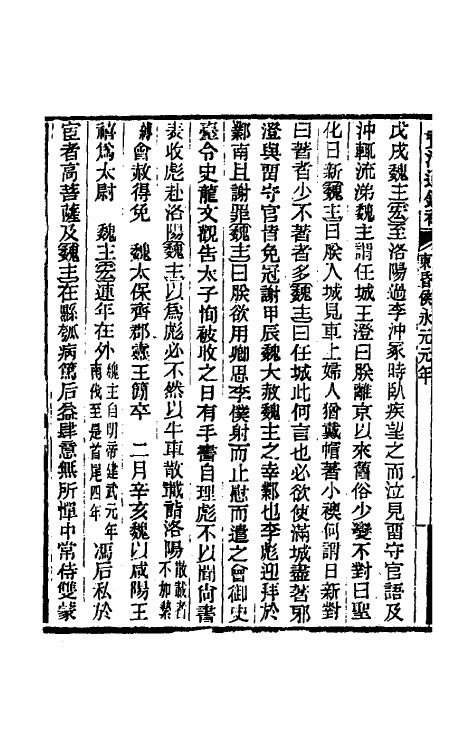 東昏侯永元元年
戊戌魏主宏至洛陽過李沖冢時臥疾望之而泣見留守官語及
沖輒流涕魏主謂任城王澄曰朕離京以來舊俗少變不對曰聖
化日新魏主曰朕入城見車上婦人猶戴帽著小襖何謂日新對
曰著者少不著者多魏主曰任城此何言也必欲使滿城盡著邪
澄與留守官皆免冠謝甲辰魏大赦魏主之幸鄴也李彪迎拜於
鄴南且謝罪魏主曰朕欲用卿思李僕射而止慰而遣之會御史
臺令史龍文觀告太子恂被收之日有手書自理彪不以聞尚書
表收彪赴洛陽魏主以為彪必不然以牛車散載詣洛陽散載者不加縶
縛會赦得免　魏太保齊郡靈王簡卒　二月辛亥魏以咸陽王
禧為太尉　魏主宏連年在外魏主自明帝建武元年南伐至是首尾四年馮后私於
宦者高菩薩及魏主在縣瓠病篤后益肆意無所憚中常侍雙蒙